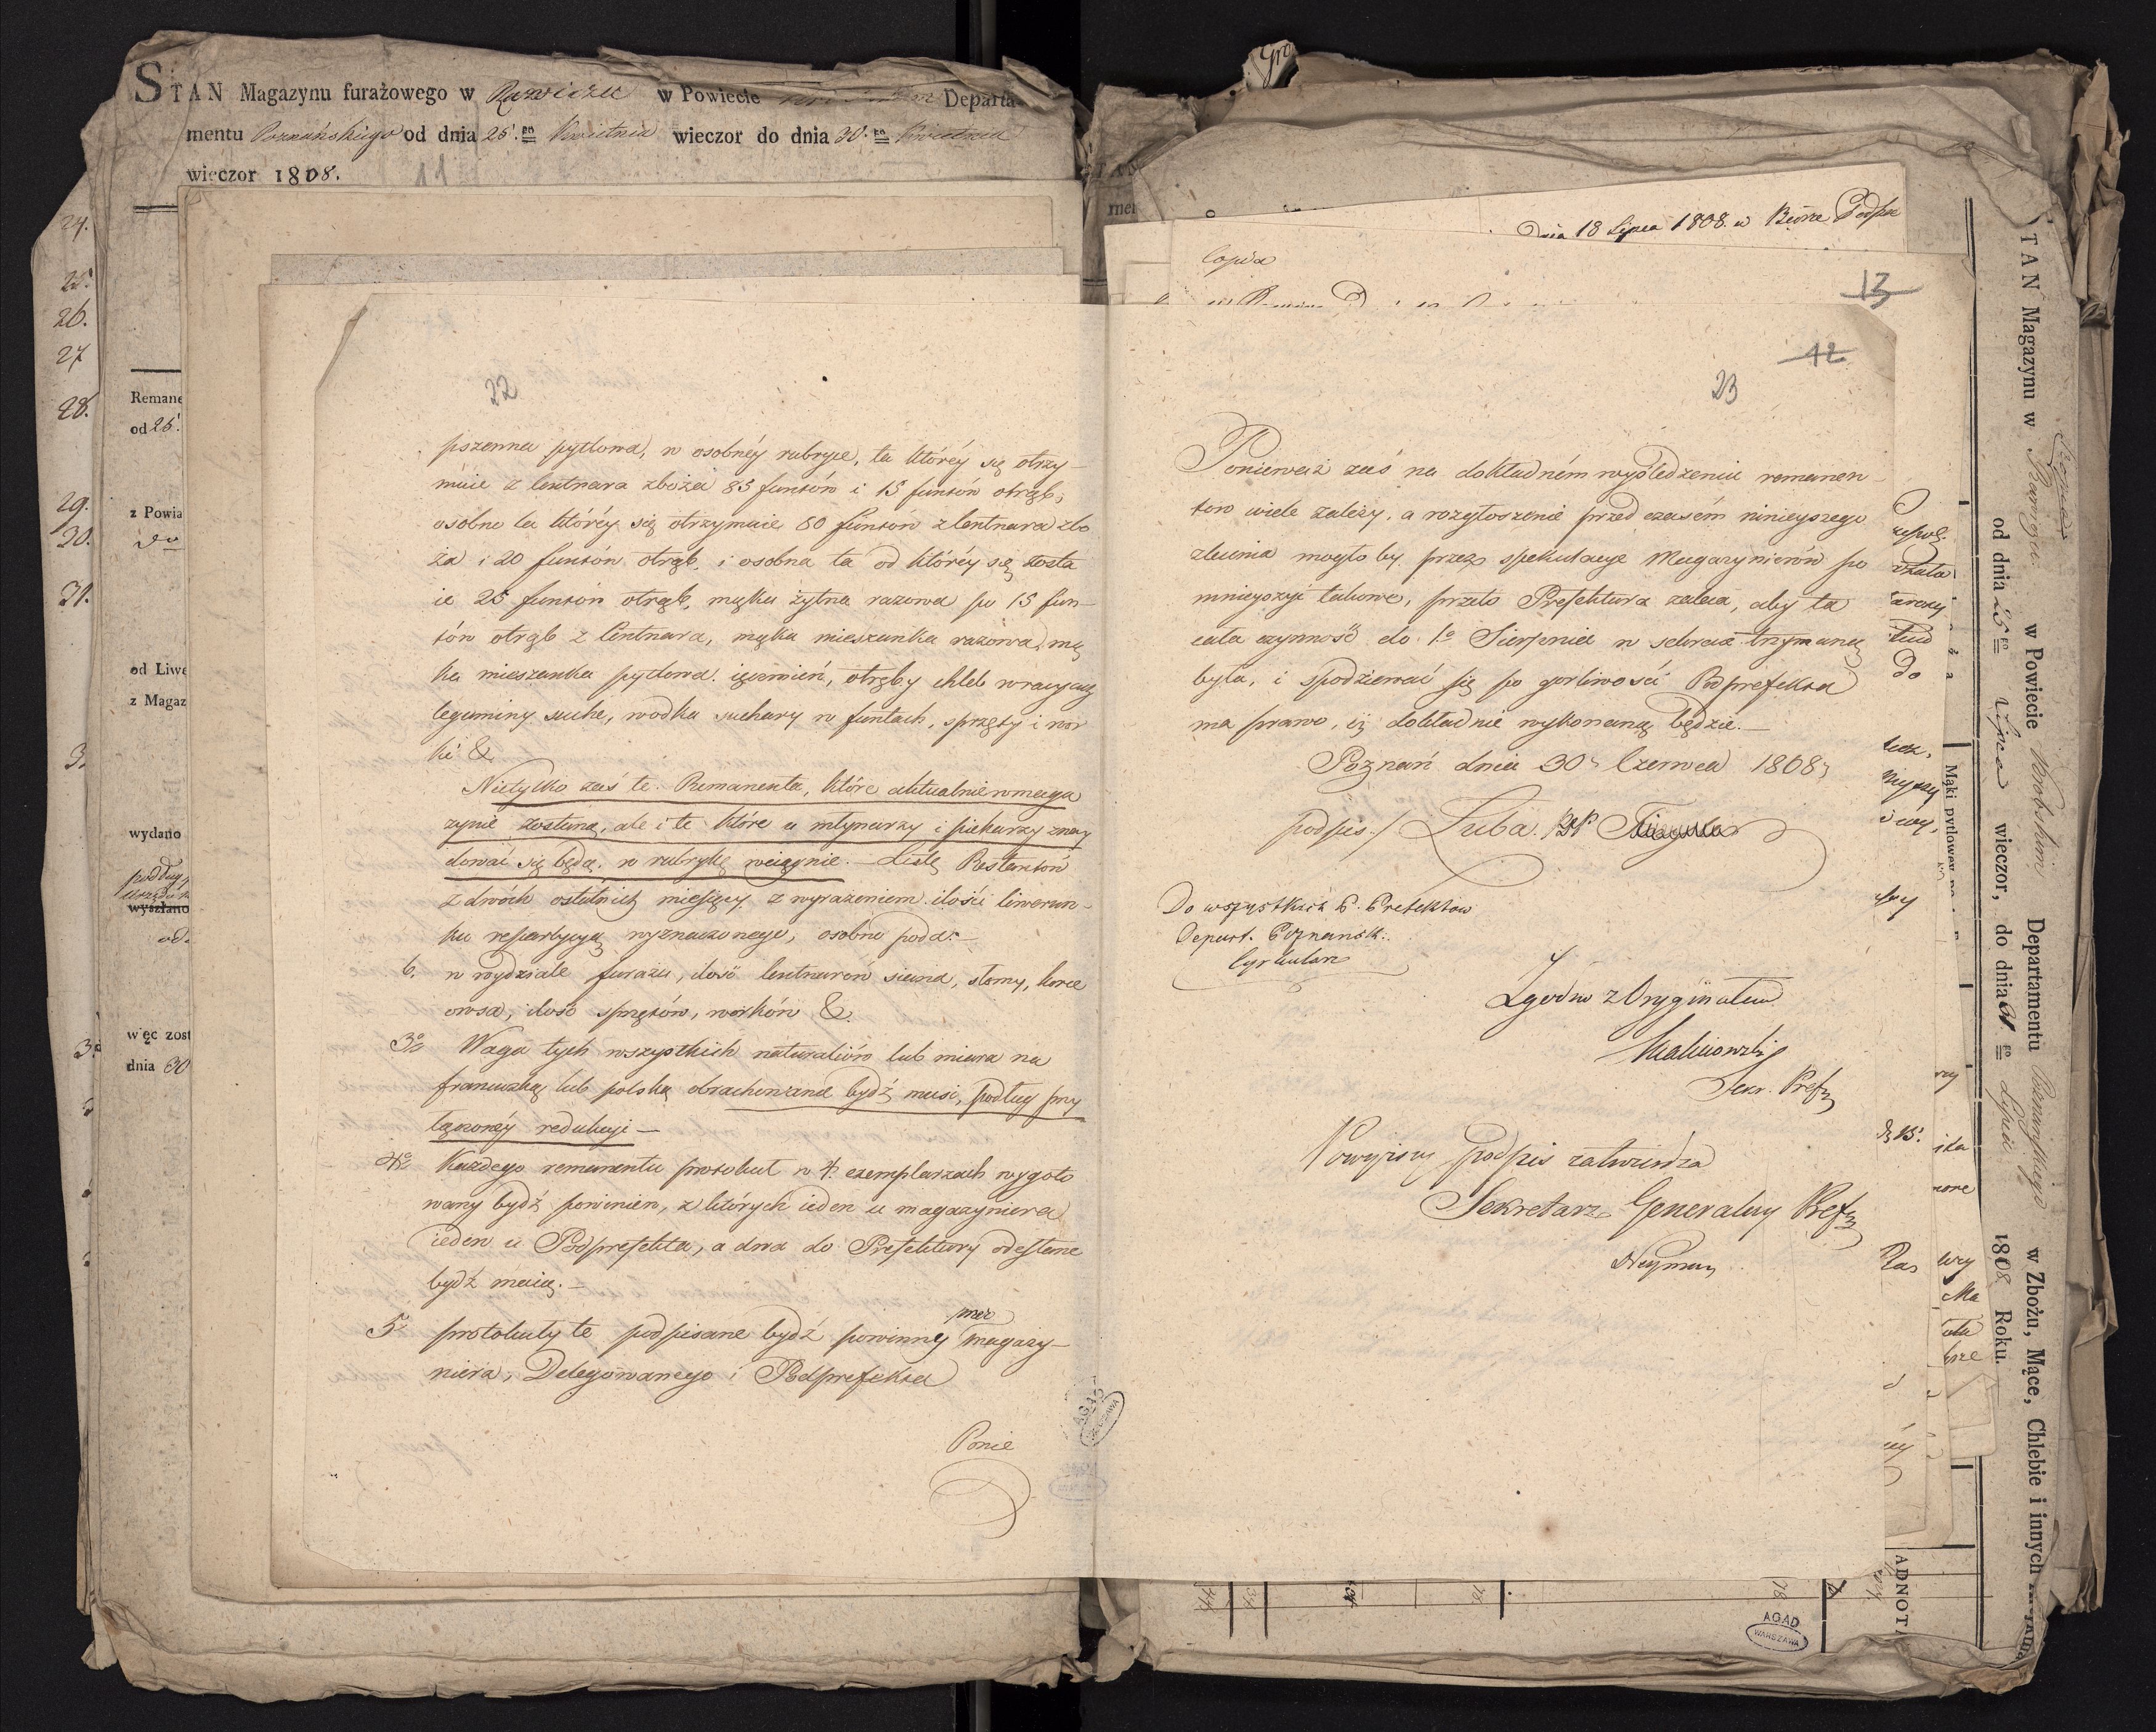 STAN Magazynu furażowego w Rawiczu w Powiecie Departa
mentu Poznańskiego od dnia 25. Kwietnia wieczor do dnia 30. Kwietnia
wieczor 1808.
11
24.
25.
26.
27
28.
29.
30.
31.
Remane
od 26.
z Powia
od Liwe
z Magaz
wydano
podług
wyszłano
więc zost
dnia 30
22
pszenna pytlowa, w osobnéy rubryce, ta któréy się otrzy-
muie z Centnara zboża 85 funtów i 15 funtów otrąb,
osobno ta któréy się otrzymuie 80 funtów z Centnara zbo
ża i 20 funtów otrąb, i osobna ta od któréy się zosta
ie 25 funtów otrąb, mąka żytna razowa po 15 fun-
tów otrąb z Centnara, mąka mieszanka razowa, mą
ka mieszanka pytlowa. ięczmień, otręby chleb w racyach
leguminy suche, wodka suchary w funtach, sprzęty i wor
ki &
Nietylko zaś te Remanenta, które aktualnie w maga
zynie zostaną, ale i te które u młynarzy i piekarzy znay
dować się będą. w rubrykę wciągnie. – Listę Restantów
z dwóch ostatnich miesięcy z wyrażeniem ilości liwerun-
ku repartycyą wyznaczonego, osobno poda. –
b. w wydziale furażu, ilość Centnarów siana, słomy, korce
owsa, ilość sprzętów, worków &.
3o Waga tych wszystkich naturaliów lub miara na
francuzką lub polską obrachowana bydź musi, podług przy
łączonéy redukcyi –
4o Każdego remanentu protokuł w 4. exemplarzach wygoto
wany bydź powinien, z których ieden u magazyniera
ieden u Podprefekta, a dwa do Prefektury odesłane
bydź maią. –
5o protokuły te podpisane bydź powinny przez magazy-
niera, Delegowanego i Podprefekta
Ponie
Dnia 18 Lipca 1808. w Biórze Podpre
Copia
13
12
23
Ponieważ zaś na dokładném wyśledzeniu remanen-
tow wiele zależy, a rozgłoszenie przed czasém ninieyszego
zlecenia mogło by przez spekulacye Magazynierów po
mnieyszyć takowe, przeto Prefektura zaleca, aby ta
cała czynność do 1o Sierpnia w sekrecie trzymaną
była, i spodziewać się po gorliwości Podprefekta
ma prawo, iż dokładnie wykonaną będzie. –
Poznań dnia 30 Czerwca 1808
podpis./ Luba.
Do wszystkich P. Prefektow
Depart. Poznansk.
Cyrkularz
Zgodno z Oryginałem
Malinowski
Sekr. Pref
Powyższy podpis zatwierdza
Sekretarz Generalny Pref
Neyman
STAN Magazynu w w Powiecie Krobskim Departamentu Poznańskiego w Zbożu, Mące, Chlebie i innych
od dnia 25 Lipca wieczor, do dnia 31 Lipca 1808 Roku.
Mąki pytlowey
ADNOT
AGAD
WARSZAWA
AGAD
WARSZAWA